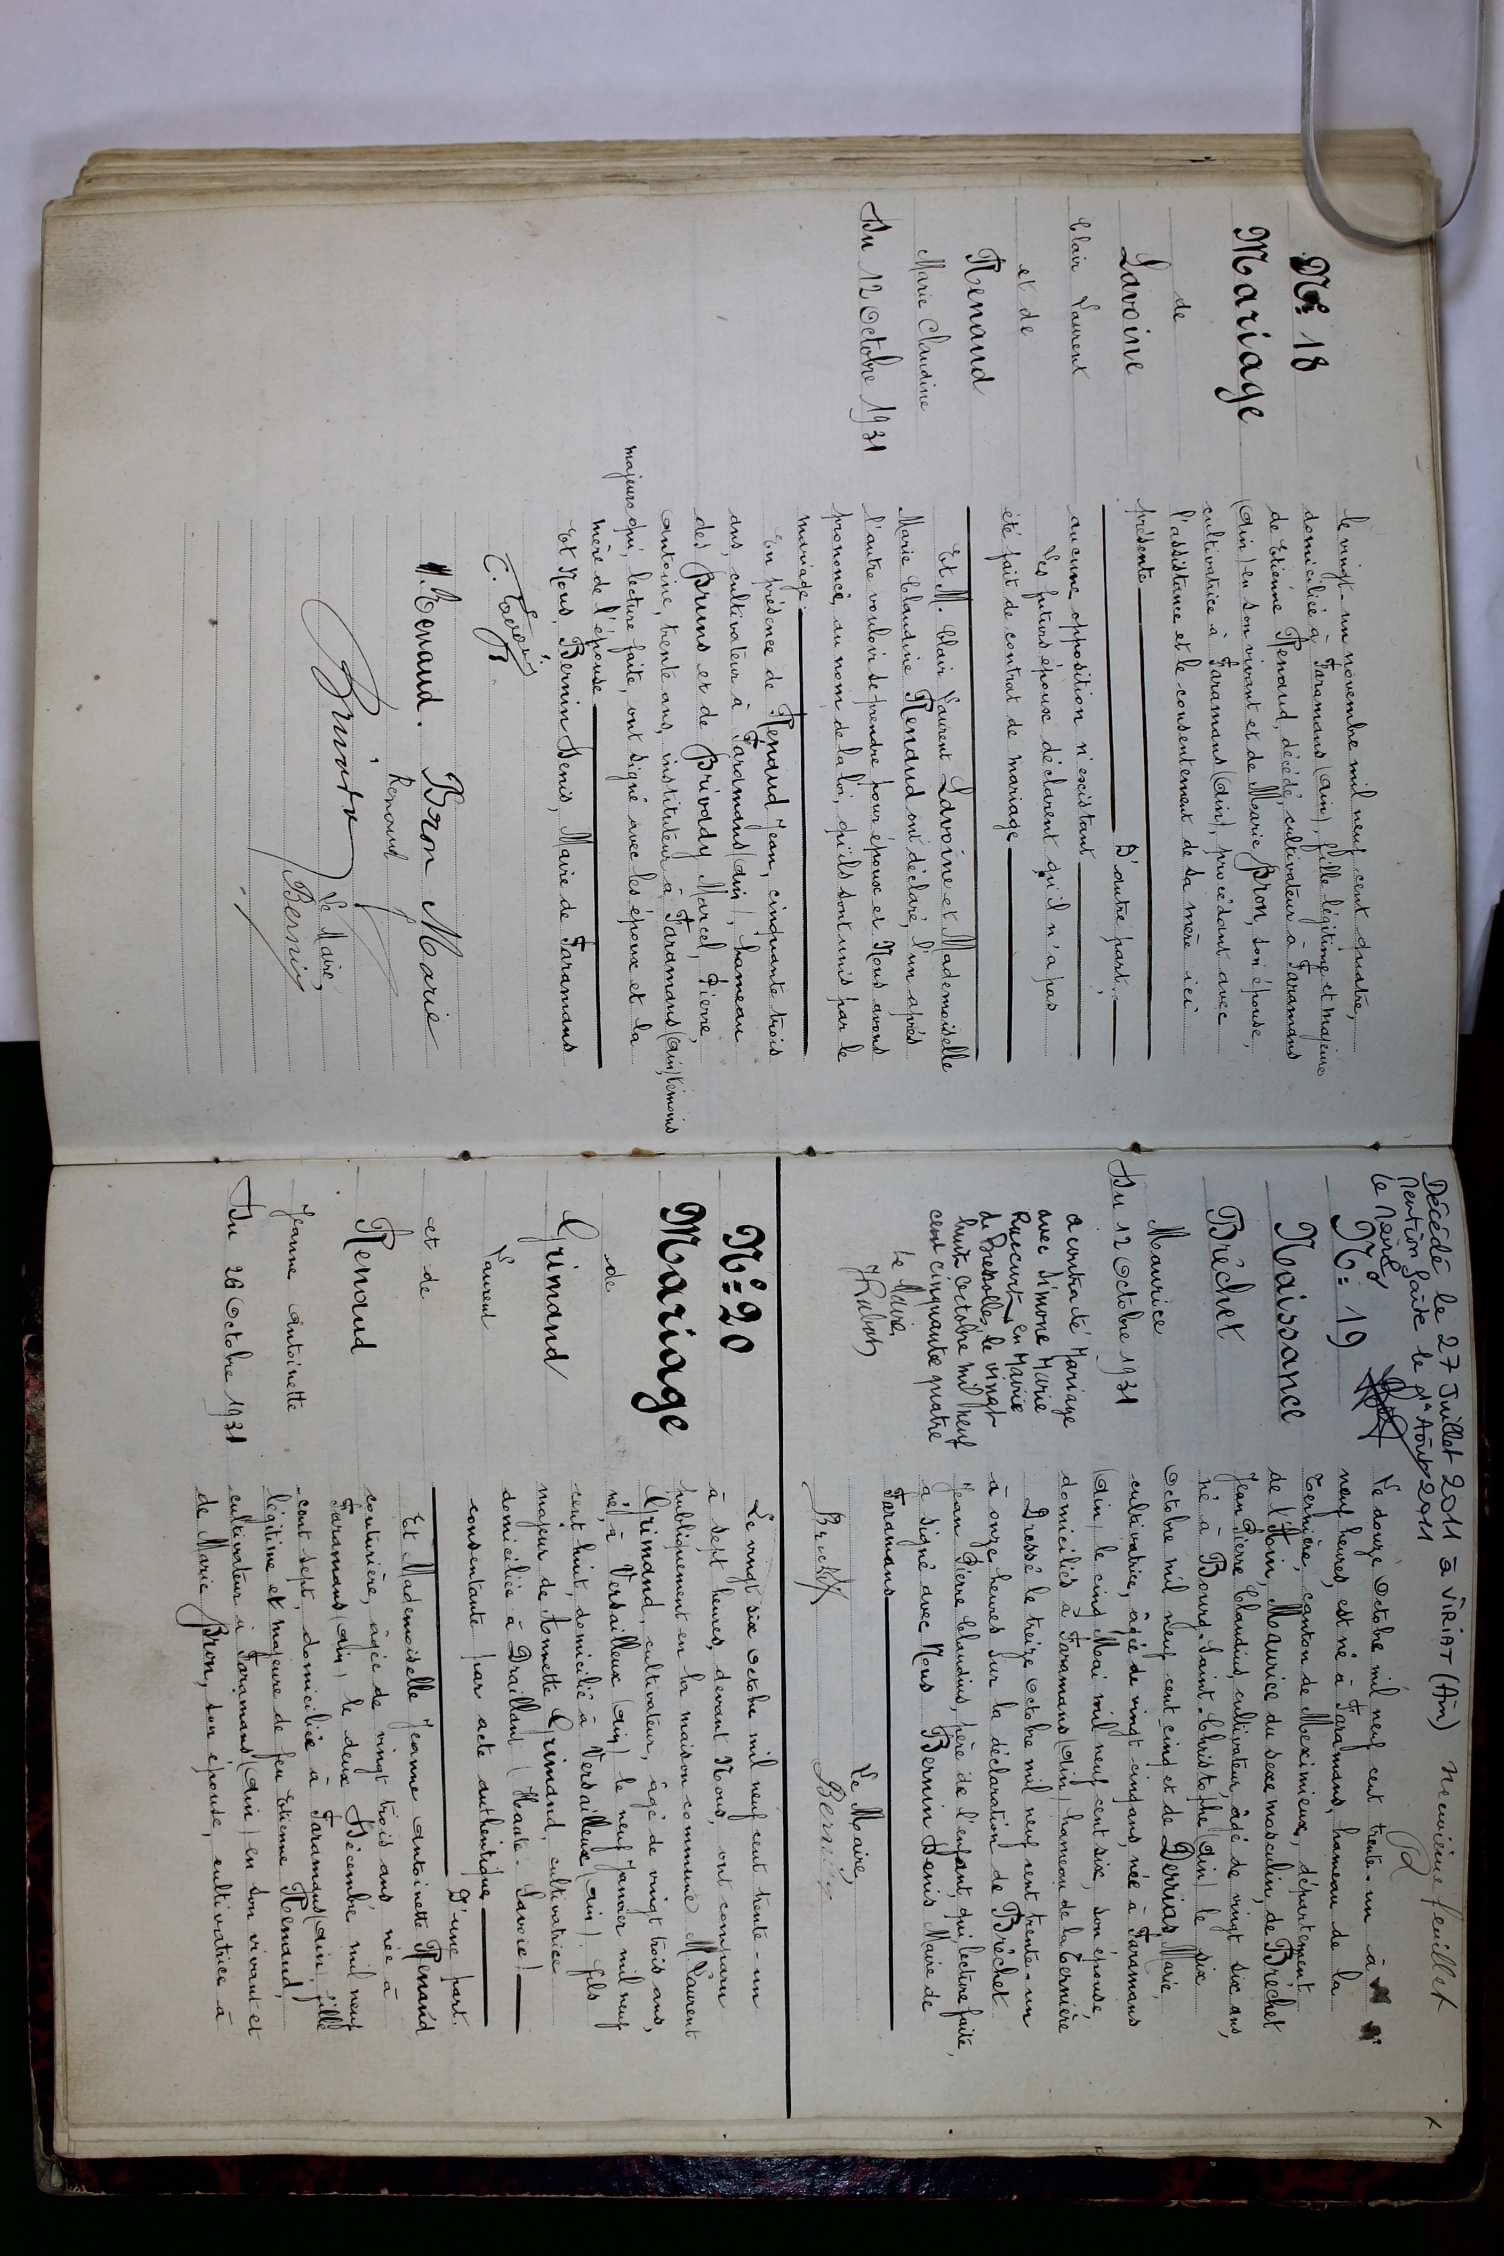 N°: 18
Mariage
de
Lavoine
Clair Laurent
et de
Renaud
Marie Claudine
Du 12 Octobre 1931
le vingt-un novembre mil neuf cent quatre,
domiciliée à Faramans (Ain), fille légitime et majeure
de Etienne Renaud, décédé, cultivateur à Faramans
(Ain) en son vivant et de Marie Bron, son épouse,
cultivatrice à Faramans (Ain), procédant avec
l'assistance et le consentement de sa mère ici
présente
D'autre part;
aucune opposition n'existant
Les futurs époux déclarent qu'il n'a pas
été fait de contrat de mariage
Et M. Clair Laurent Lavoine et Mademoiselle
Marie Claudine Renaud ont déclaré, l'un après
l'autre vouloir se prendre pour époux et Nous avons
prononcé, au nom de la loi, qu'ils sont unis par le
mariage.
En présence de Renaud Jean, cinquante trois
ans, cultivateur à Faramans (Ain), hameau
des Bruns et de Brivady Marcel, Pierre,
Antoine, trente ans, instituteur à Faramans (Ain), témoins
majeurs qui, lecture faite, ont signé avec les époux et la
mère de l'épouse
Et Nous, Bernin Denis, Maire de Faramans
M. Renaud. Bron Marie
Renaud
Le Maire,
Bernin
Décédé le 27 Juillet 2011 à VIRIAT (Ain)
Mention faite le 1er Août 2011
Le Maire
neuvième feuillet
N°: 19
Naissance
Bréchet
Maurice
Du 12 Octobre 1931
a contracté Mariage
avec Simone Marie
en Mairie
de Bressolles, le vingt
huit Octobre mil neuf
cent cinquante quatre
Le Maire,
Le douze Octobre mil neuf cent trente-un à
neuf heures, est né à Faramans, hameau de la
Ternière, canton de Meximieux, département
de l'Ain, Maurice du sexe masculin, de Bréchet
Jean Pierre Claudius, cultivateur, âgé de vingt six ans,
né à Bourg-Saint-Christophe (Ain) le six
Octobre mil neuf cent cinq et de Derrias, Marie,
cultivatrice, âgée de vingt-cinq ans, née à Faramans
(Ain) le cinq Mai mil neuf cent six, son épouse,
domiciliés à Faramans (Ain) hameau de la Ternière
Dressé le treize Octobre mil neuf cent trente-un
à onze heures sur la déclaration de Bréchet
Jean Pierre Claudius, père de l'enfant, qui, lecture faite,
a signé avec Nous Bernin Denis Maire de
Faramans
Le Maire,
Brechet
Bernin
N°= 20
Mariage
de
Grimand
Laurent
et de
Renaud
Jeanne Antoinette
Du 26 Octobre 1931
Le vingt six Octobre mil neuf cent trente-un
à sept heures, devant Nous, ont comparu
publiquement en la maison commune M. Laurent
Grimand, cultivateur, âgé de vingt trois ans,
né à Versailleux (Ain) le neuf Janvier mil neuf
cent huit, domicilié à Versailleux (Ain) fils
majeur de Annette Grimand, cultivatrice
domiciliée à Draillant (Haute-Savoie)
consentante par acte authentique
D'une part.
Et Mademoiselle Jeanne Antoinette Renaud
couturière, âgée de vingt trois ans née à
Faramans (Ain) le deux Décembre mil neuf
cent sept, domiciliée à Faramans (Ain), fille
légitime et majeure de feu Etienne Renaud,
cultivateur à Faramans (Ain) en son vivant et
de Marie Bron, son épouse, cultivatrice à